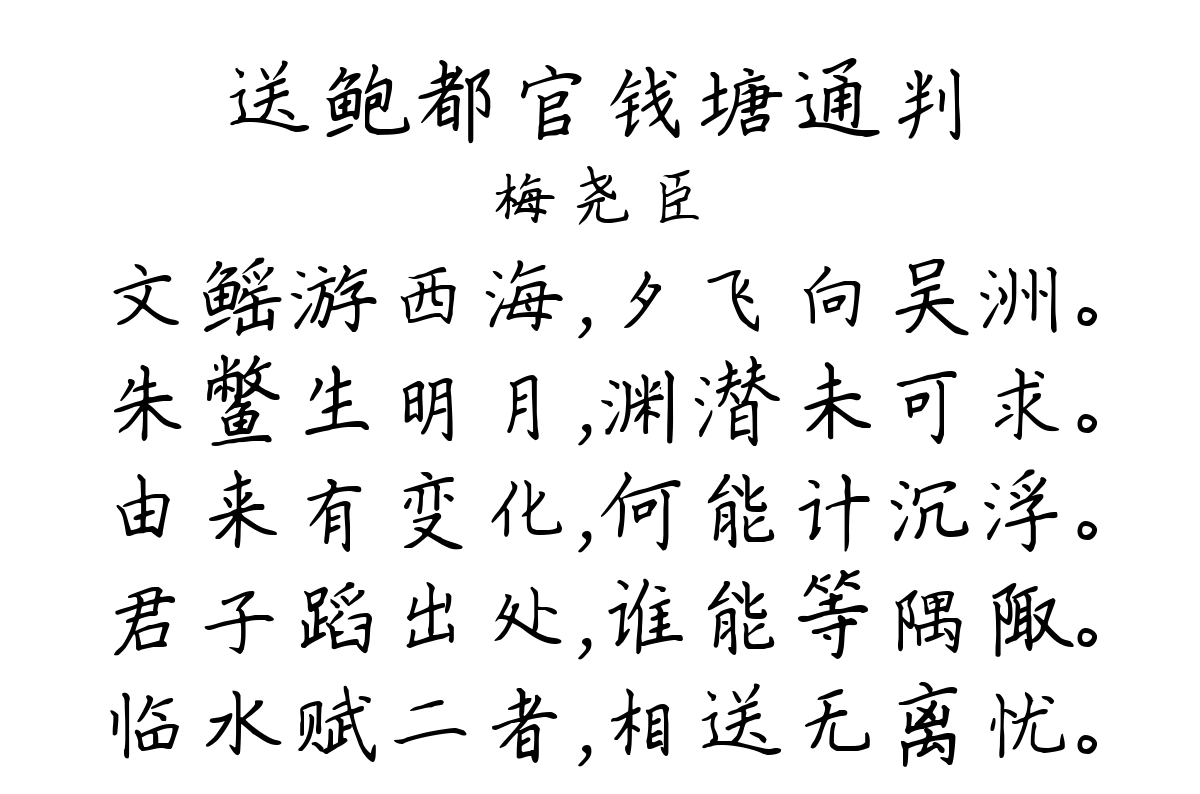 送鲍都官钱塘通判
梅尧臣
文鳐游西海,夕飞向吴洲。
朱鳖生明月,渊潜未可求。
由来有变化,何能计沉浮。
君子蹈出处,谁能等隅陬。
临水赋二者,相送无离忧。